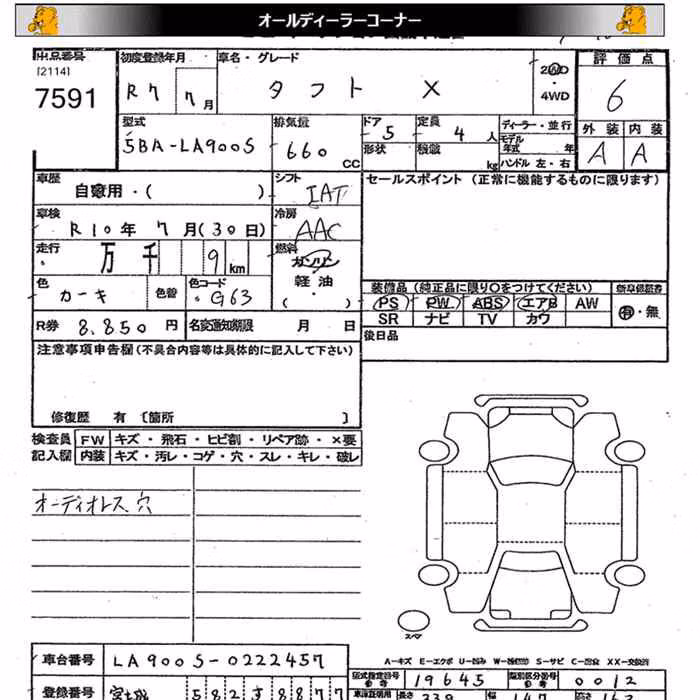 オールディーラーコーナー
出品番号
[2114]
7591
初度登録年月
R7 7月
車名・グレード
タフト X
2WD
・
4WD
評価点
6
外装 内装
A A
型式
5BA-LA900S
排気量
660 CC
ドア 5
形状
定員 4 人
積載 kg
ディーラー・並行
モデル年式 年
ハンドル 左・右
車歴
自家用・( )
シフト
IAT
セールスポイント (正常に機能するものに限ります)
車検
R10年 7月(30日)
冷房
AAC
走行
万 千 9 km
燃料
ガソリン
軽油
( )
色
カーキ
色替
色コード
G63
装備品 (純正品に限り〇をつけてください)
新車保証書
PS PW ABS エアB AW
有・無
SR ナビ TV カワ
R券 8,850 円
名変通知期限 月 日
後日品
注意事項申告欄 (不具合内容等は具体的に記入して下さい)
修復歴 有 〔箇所 〕
検査員 FW キズ・飛石・ヒビ割・リペア跡・×要
記入欄 内装 キズ・汚レ・コゲ・穴・スレ・キレ・破レ
オーディオレス穴
スペア
A-キズ E-エクボ U-凹み W-補修跡 S-サビ C-腐食 XX-交換済
車台番号 LA900S-0222457
型式指定番号 19645
類別区分番号 0012
登録番号
長さ 339
幅 147
高さ